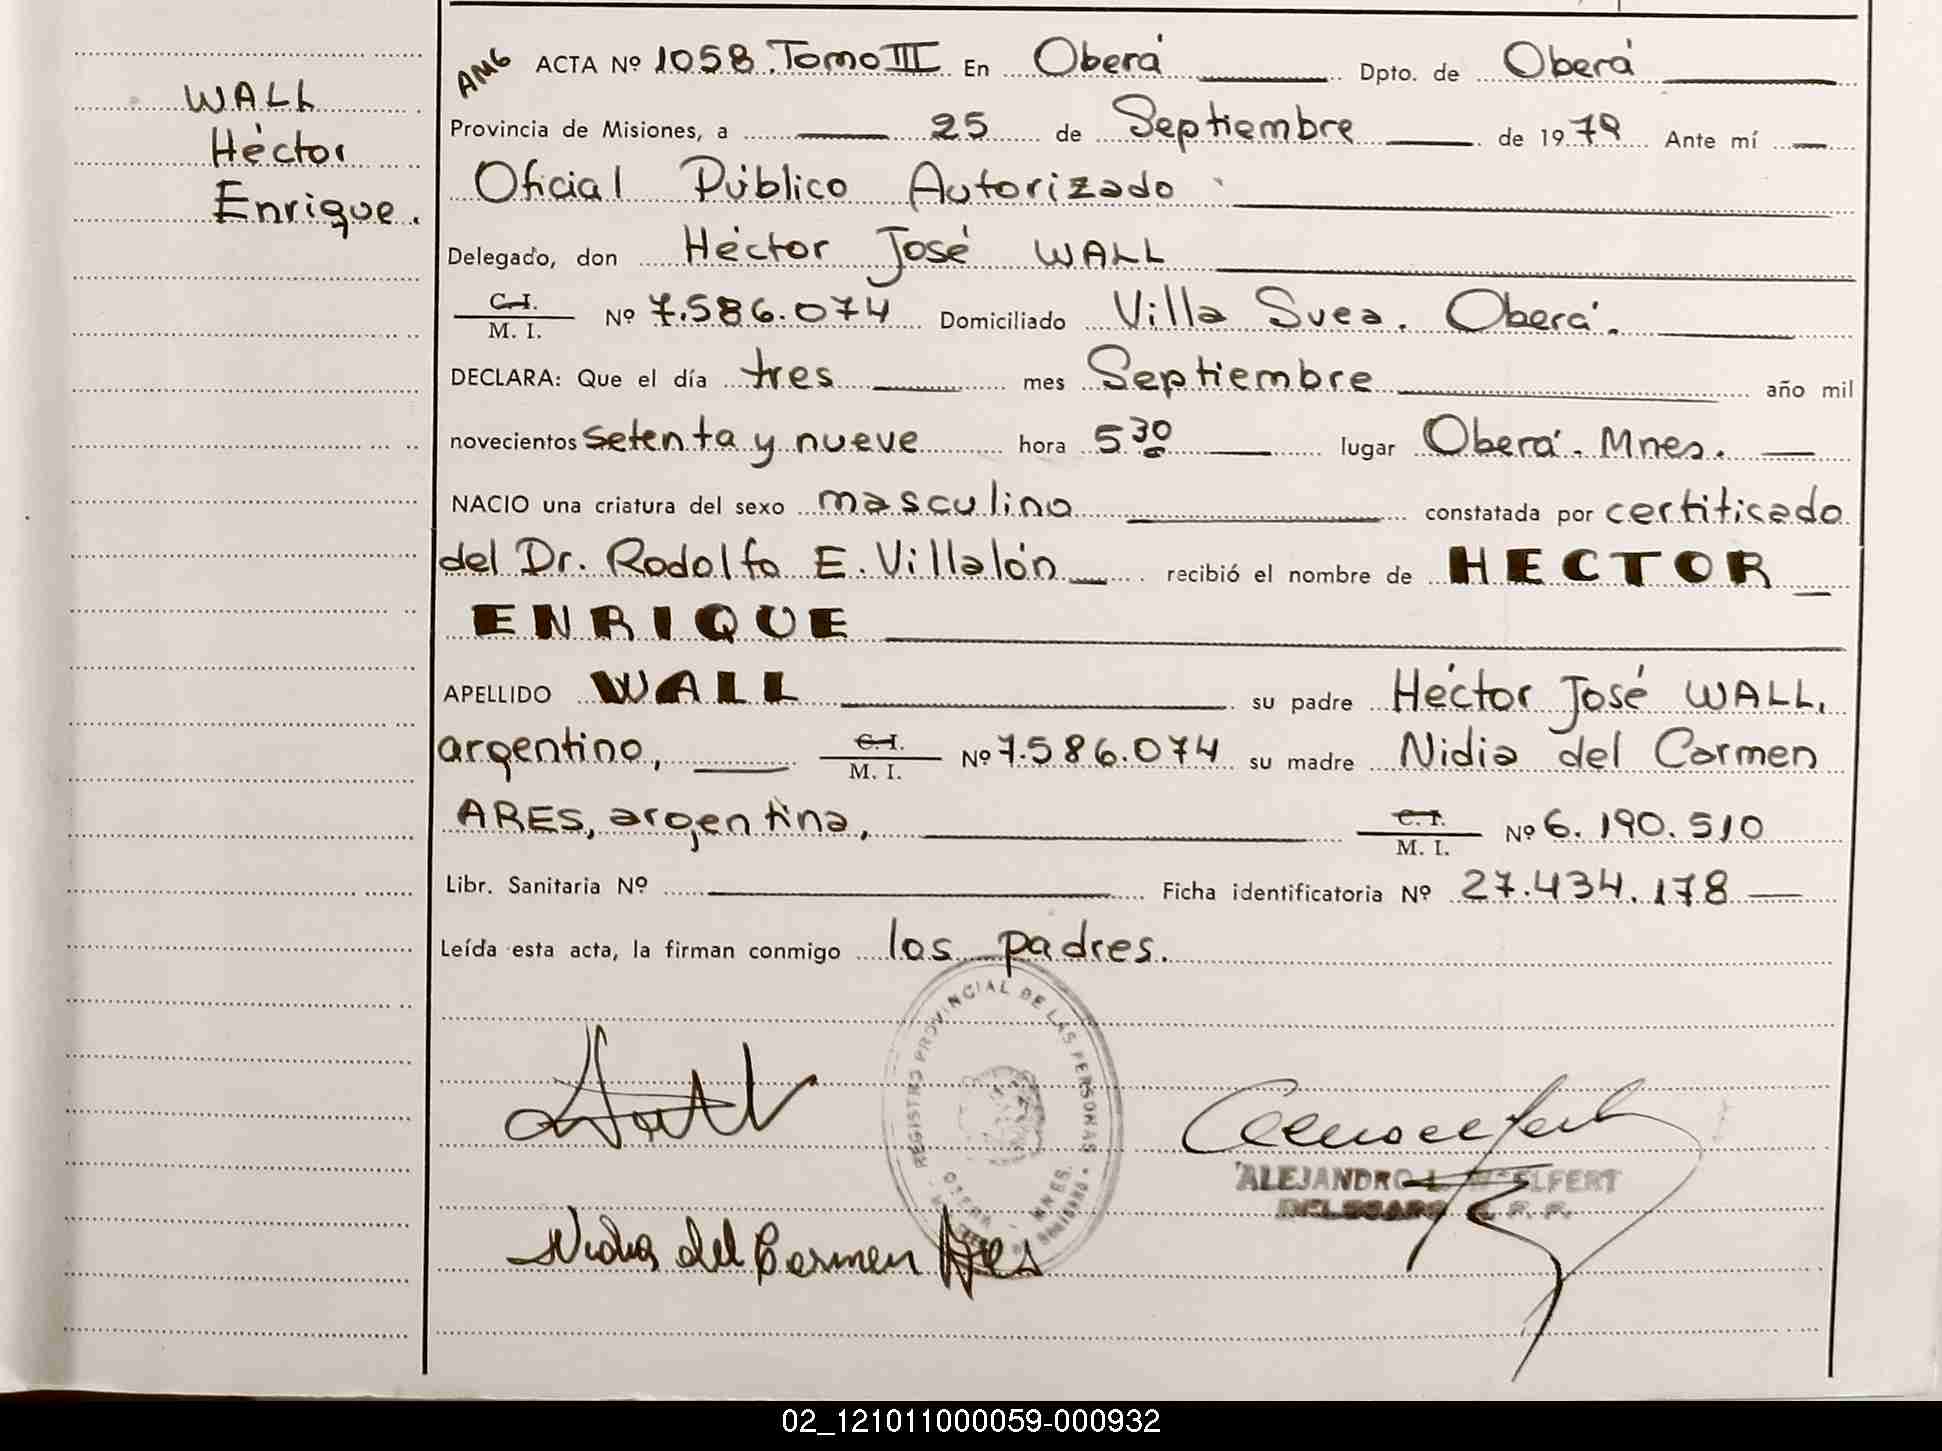 WALL
Héctor
Enrique.
AMG ACTA Nº 1058. Tomo III En Oberá Dpto. de Oberá
Provincia de Misiones, a 25 de Septiembre de 1979 Ante mí
Oficial Público Autorizado
Delegado, don Héctor José WALL
C.I.
M. I. Nº 7.586.074 Domiciliado Villa Svea. Oberá.
DECLARA: Que el día tres mes Septiembre año mil
novecientos setenta y nueve hora 5 30 lugar Oberá. Mnes.
NACIO una criatura del sexo masculino constatada por certificado
del Dr. Rodolfo E. Villalón recibió el nombre de HECTOR
ENRIQUE
APELLIDO WALL su padre Héctor José WALL,
argentino, C.I.
M. I. Nº 7.586.074 su madre Nidia del Carmen
ARES, argentina, C.I.
M. I. Nº 6.190.510
Libr. Sanitaria Nº Ficha identificatoria Nº 27.434.178
Leída esta acta, la firman conmigo los padres.
REGISTRO PROVINCIAL DE LAS PERSONAS
OBERA - MNES.
ALEJANDRO L. WOELFERT
DELEGADO R. P. P.
Nidia del Carmen Ares
02_121011000059-000932